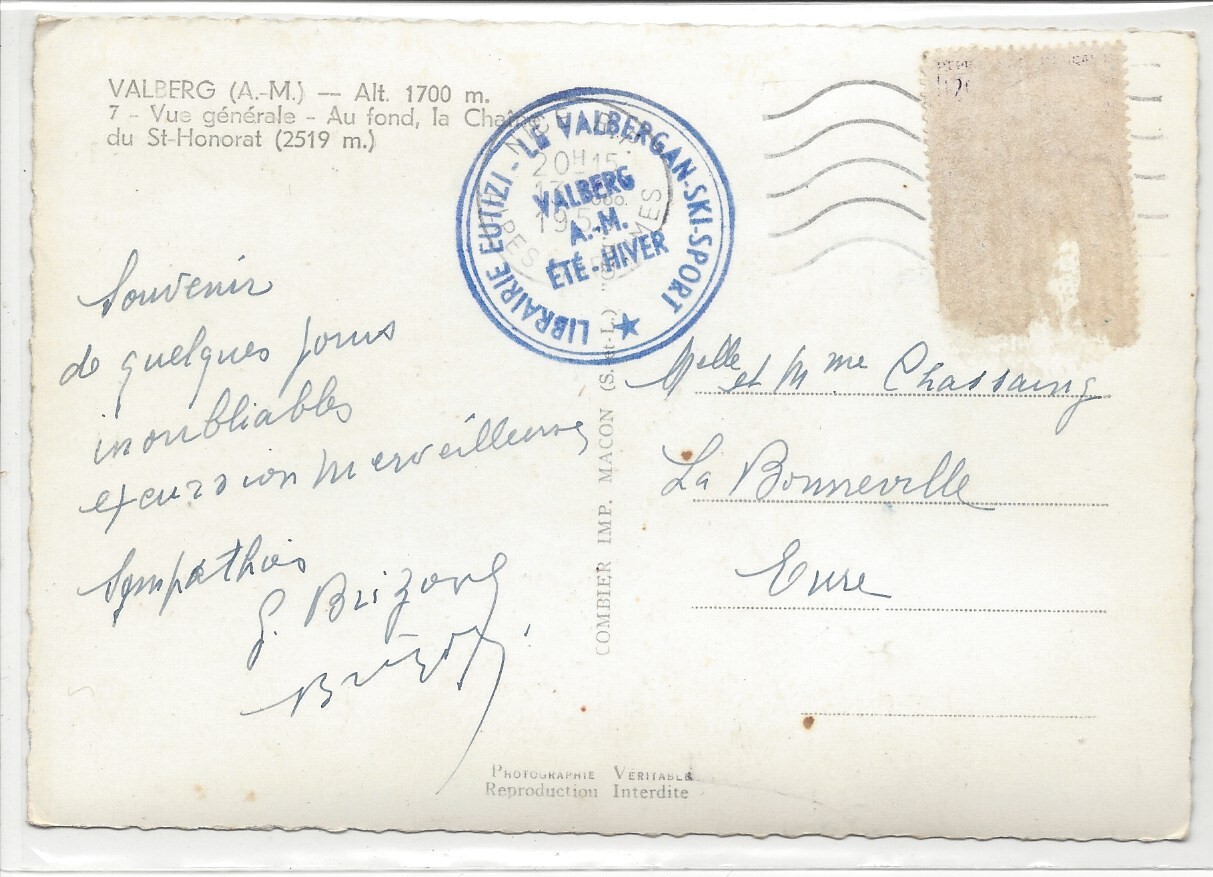 VALBERG (A.-M.) — Alt. 1700 m.
7 - Vue générale - Au fond, la Chaîne
du St-Honorat (2519 m.)
LIBRAIRIE EUTIZI - LE VALBERGAN-SKI-SPORT
VALBERG
A.-M.
ÉTÉ - HIVER
NICE
20H15
195
MES
Souvenir
de quelques jours
inoubliables
excursion merveilleuse
Sympathies
G. Brizard
Melle et Mme Chassaing
La Bonneville
Eure
COMBIER IMP. MACON (S.-et-L.)
PHOTOGRAPHIE VÉRITABLE
Reproduction Interdite